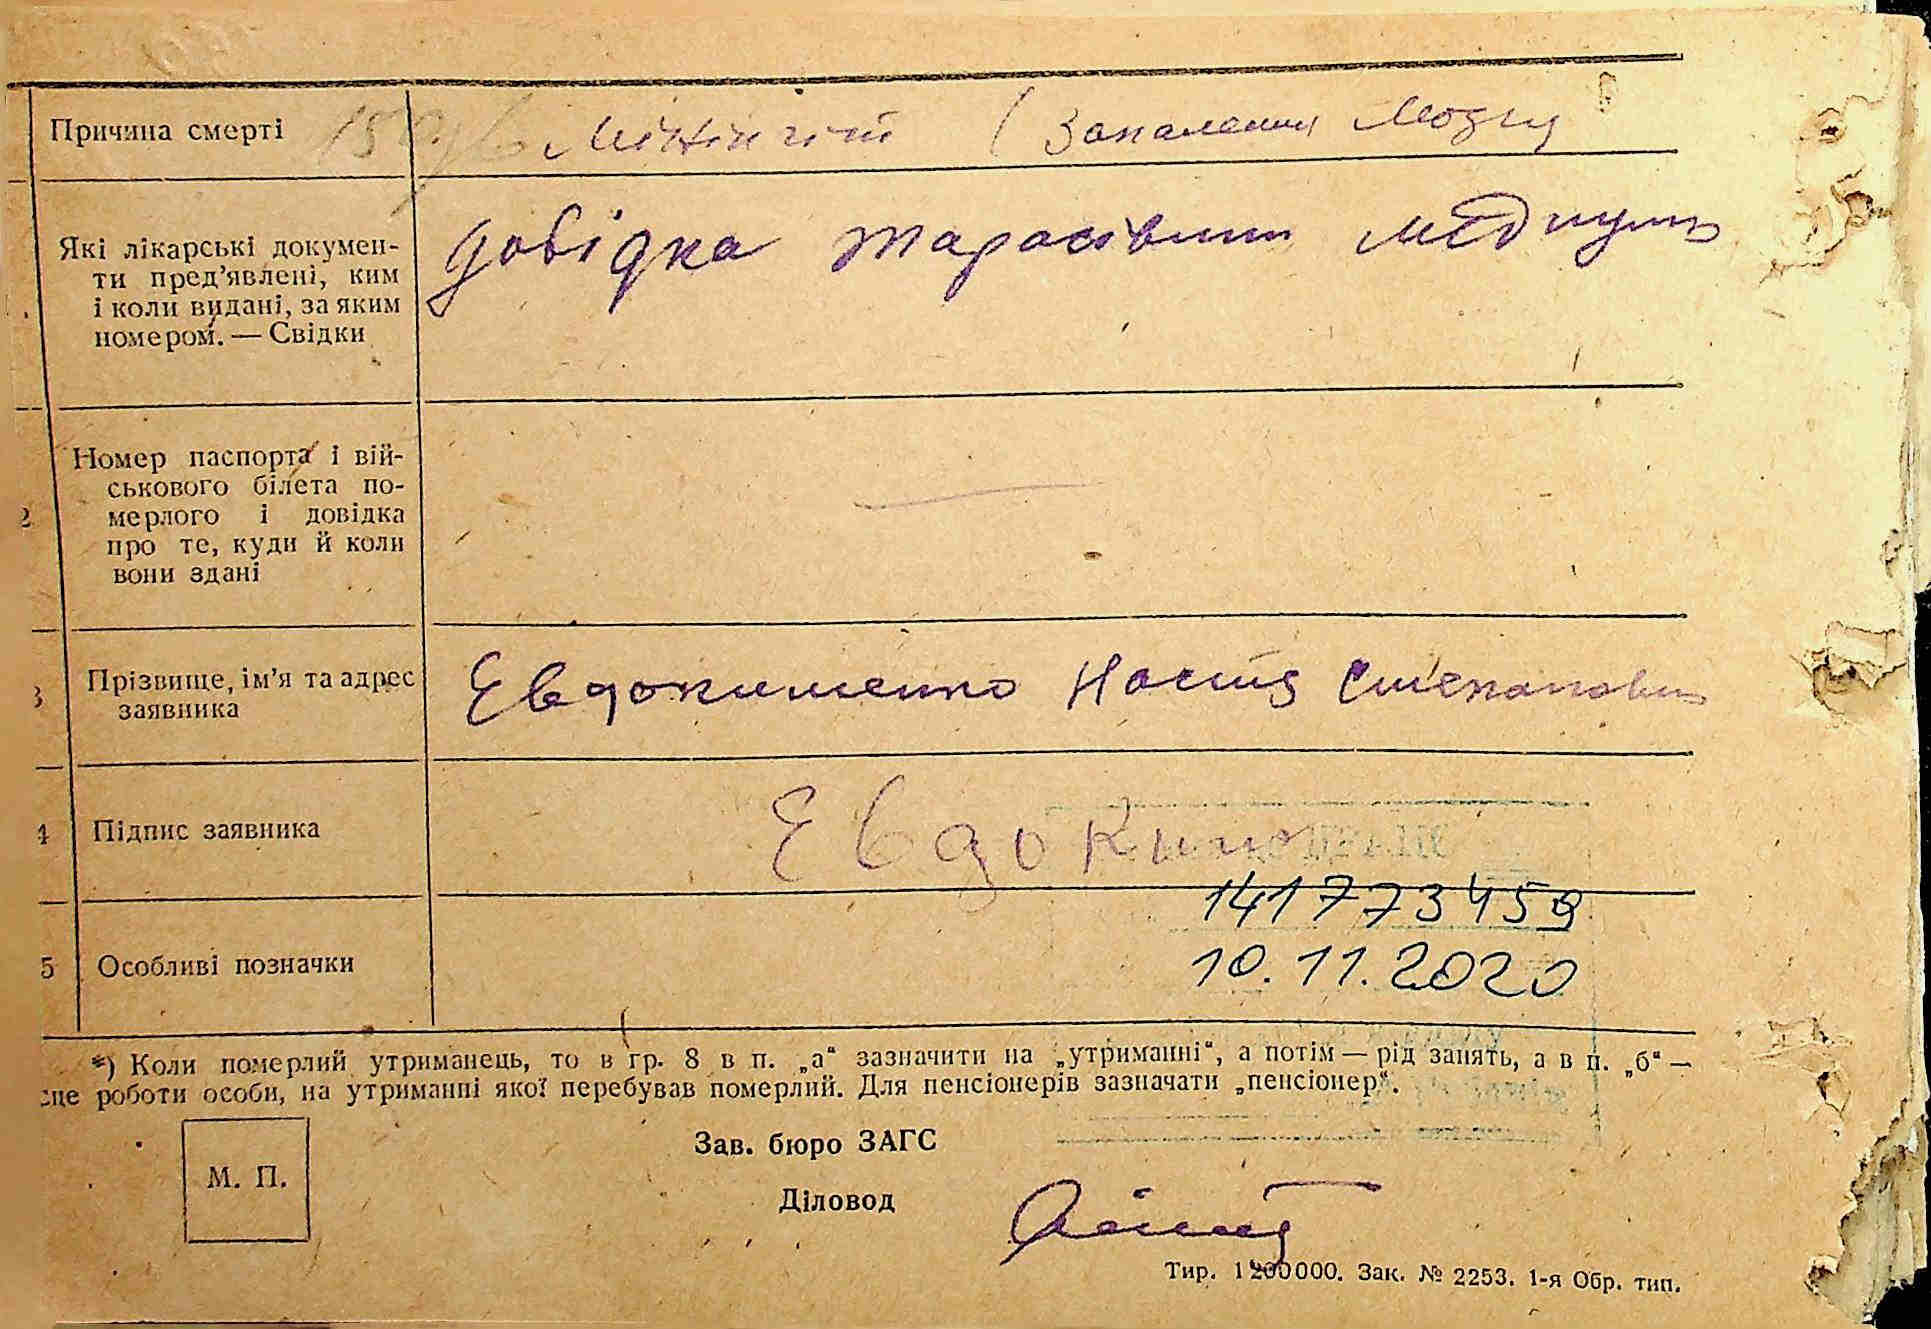 Причина смерті
Мінінгіт (Запалення Мозку
Які лікарські докумен-
ти пред’явлені, ким
і коли видані, за яким
номером. — Свідки
довідка Тарасівким медпункт
Номер паспорта і вій-
ськового білета по-
мерлого і довідка
про те, куди й коли
вони здані
—
2
Прізвище, ім’я та адрес
заявника
Евдокименко Настя Степановна
3
Підпис заявника
Евдоким
4
141773459
Особливі позначки
10.11.2020
5
*) Коли померлий утриманець, то в гр. 8 в п. „а“ зазначити на „утриманні“, а потім — рід занять, а в п. „б“ —
це роботи особи, на утриманні якої перебував померлий. Для пенсіонерів зазначати „пенсіонер“.
М. П.
Зав. бюро ЗАГС
Діловод
Тир. 1200000. Зак. № 2253. 1-я Обр. тип.